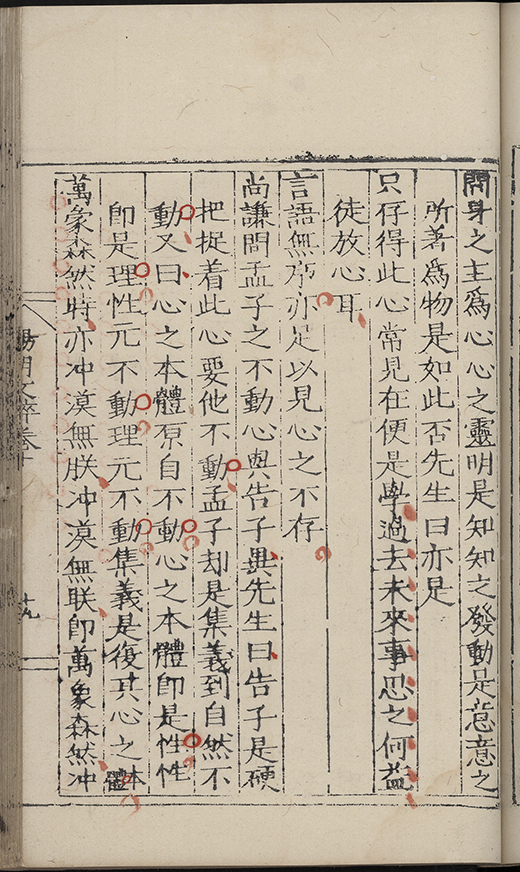 問身之主爲心心之靈明是知知之發動是意意之
所著爲物是如此否先生曰亦是
只存得此心常見在便是學過去未來事思之何益
徒放心耳
言語無序亦足以見心之不存
尚謙問孟子之不動心與告子異先生曰告子是硬
把捉着此心要他不動孟子却是集義到自然不
動又曰心之本體原自不動心之本體即是性性
即是理性元不動理元不動集義是復其心之本體
萬象森然時亦冲漠無朕冲漠無联即萬象森然冲
陽明文粹卷
十九